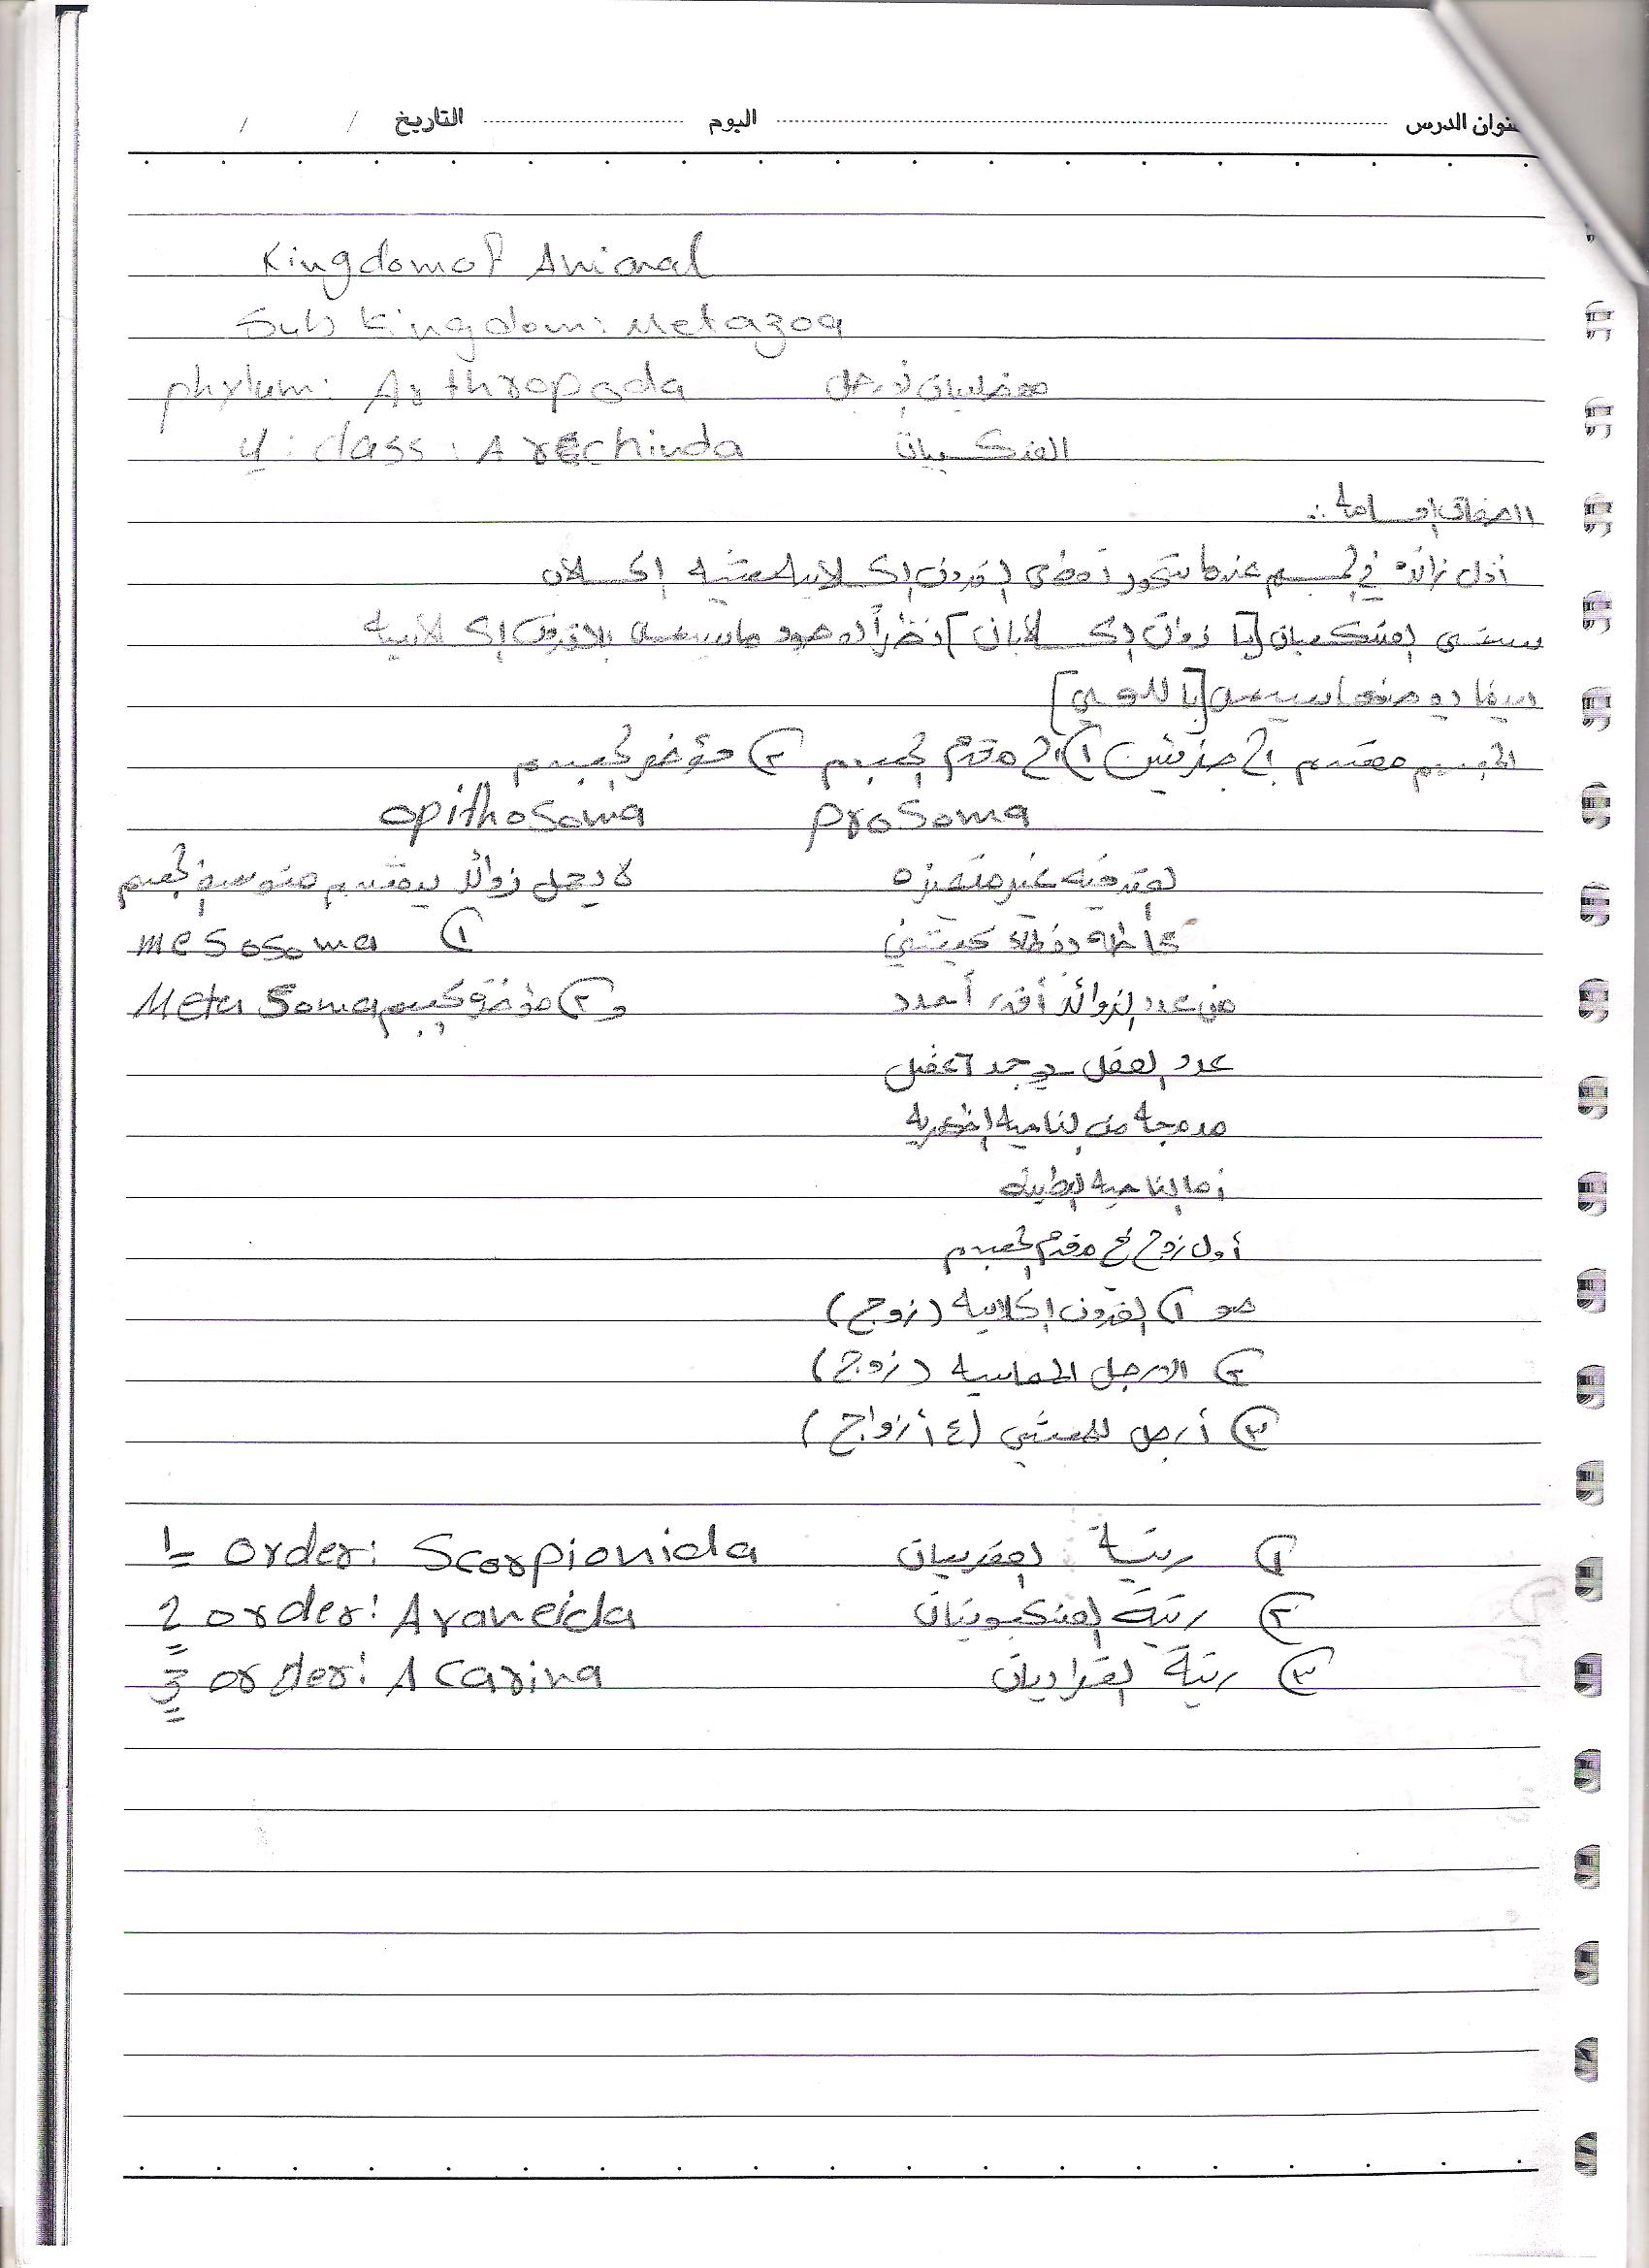 عنوان الدرس اليوم التاريخ / /
Kingdom of Animal
Sub Kingdom: Metazoa
phylum: Arthropoda مفصليات الارجل
4: class: Arechinda العنكبيات
الصفات العامة :.
أول زائدة في الجسم عندما تتحور تعطي القرون الكلابية
تسمى العنكبيات [با ذوات الكلابات] نظراً لوجود ما يسمى بالقرون الكلابية
[با للوامس]
الجسم مقسم إلى جزئين ① الى مقدم الجسم ② مؤخر الجسم
opithosoma prosoma
لا يحمل زوائد يقسم متوسط الجسم العقد فيه غير متميزه
mesosoma ①
Meta Soma و② مؤخرة الجسم من عدد الزوائد أقدر أحدد
عدد العقل يوجد ٦ عقل
مدمجة من الناحية الظهرية
أما الناحية البطنية
أول زوج في مقدم الجسم
هو ① القرون الكلابية (زوج)
② الارجل الماسية (زوج)
③ أرجل للمشي (٤ أزواج)
1- order: Scorpionida ① رتبة العقربيات
2 order: Araneida ② رتبة العنكبوتيات
3 order: Acarina ③ رتبة القراديات